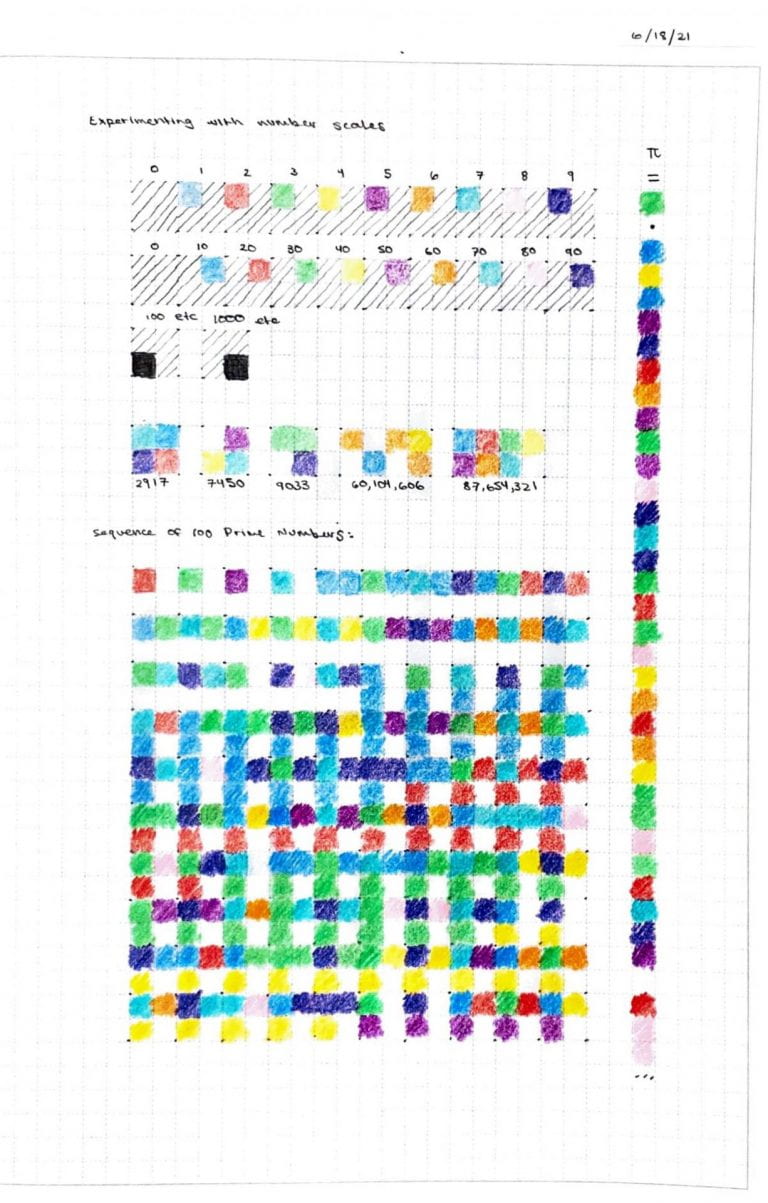 6/18/21
Experimenting with number scales
π
=
0 1 2 3 4 5 6 7 8 9
0 10 20 30 40 50 60 70 80 90
100 etc 1000 etc
2917 7450 9033 60,104,606 87,654,321
Sequence of 100 Prime Numbers:
...